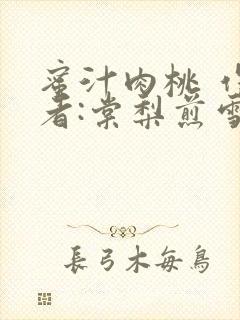 蜜汁肉桃 作
者:棠梨煎雪
長弓木每鳥